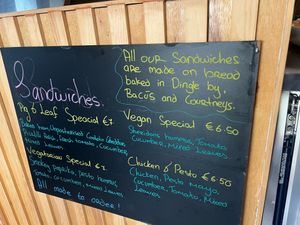 Sandwiches.
All our Sandwiches
are made on bread
baked in Dingle by
Bacús and Courtneys.
Pig & Leaf Special €7.
Baked Ham, Unpasteurised Coolattin Cheddar,
Piccalilli Relish, Mixed, tomato, Cucumber
Mixed Leaves
Vegetarian Special €7.
Smokey Paprika, Pesto hummus
Tomato, Cucumber, Mixed Leaves
All made to order!
Vegan Special €6.50
Sheridans hummus, Tomato
Cucumber, Mixed Leaves
Chicken & Pesto €6.50
Chicken, Pesto Mayo,
Cucumber, Tomato, Mixed
Leaves